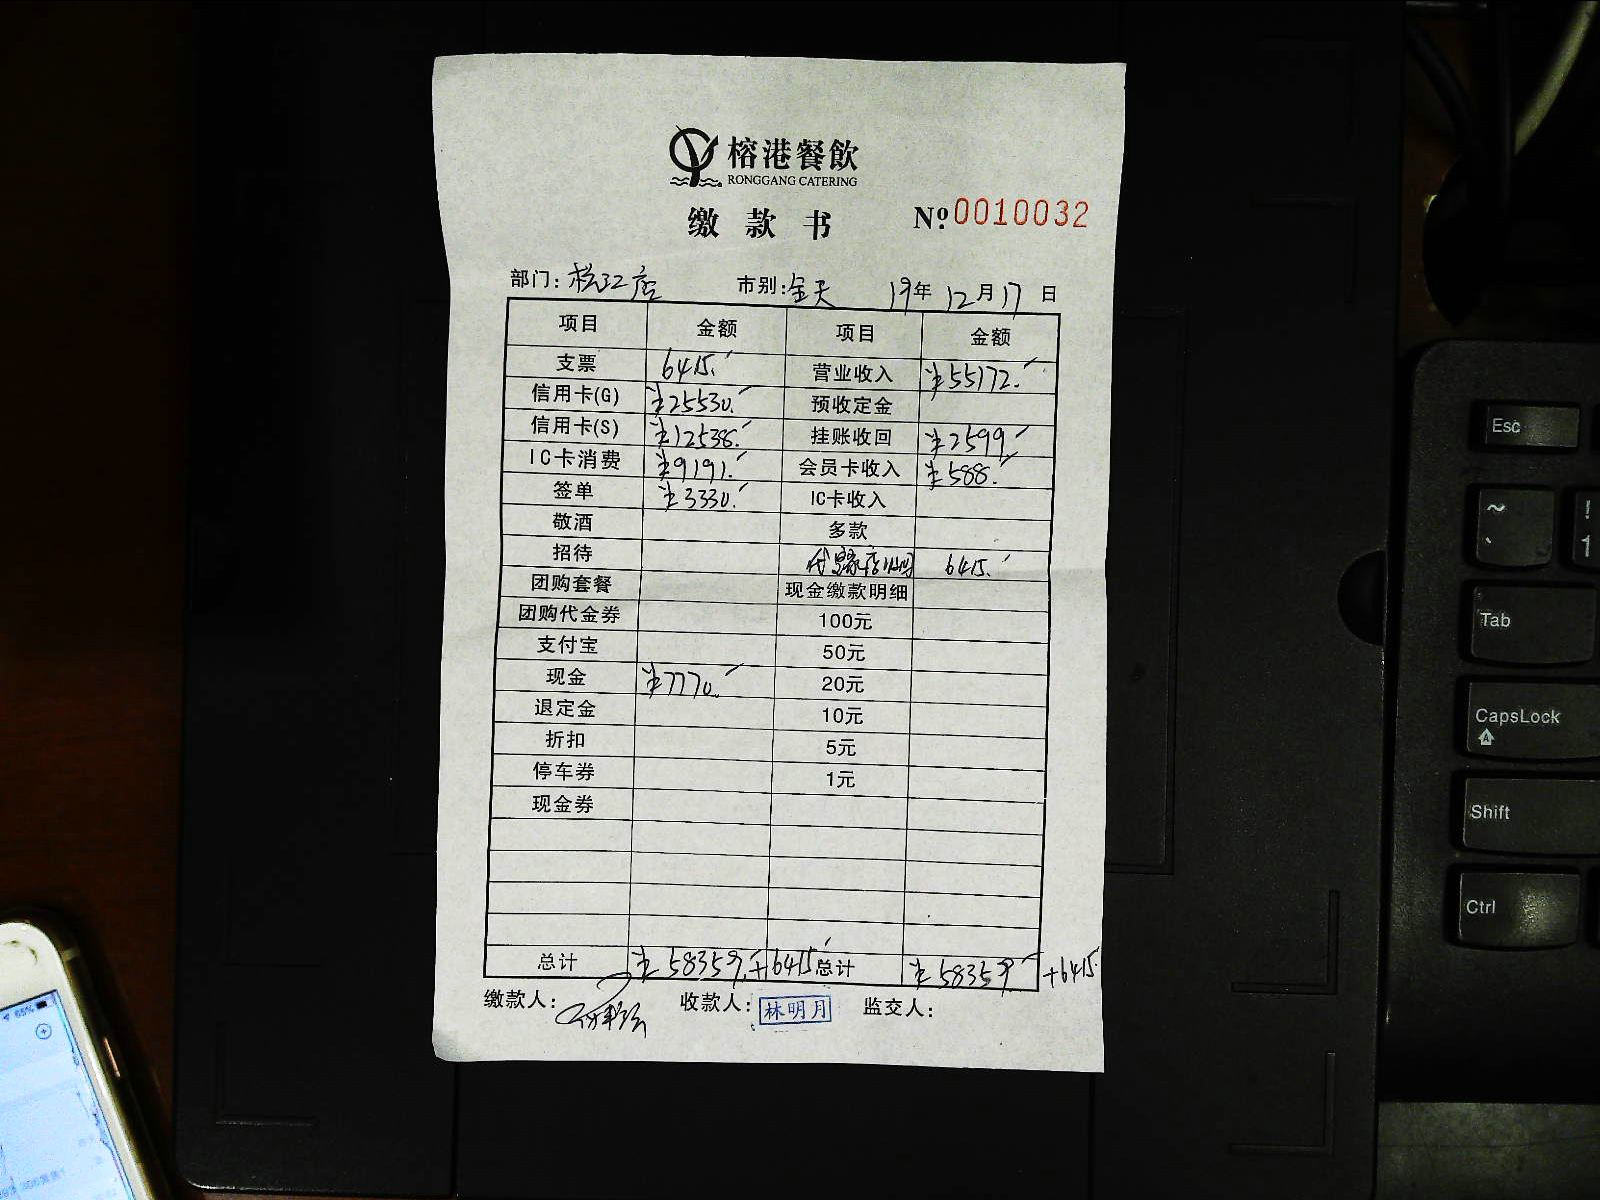 榕港餐飲
RONGGANG CATERING
缴款书 №.0010032
部门: 松江店 市别:全天 19年12月17日
项目 金额 项目 金额
支票 6415. 营业收入 ¥55172.
信用卡(G) ¥25530. 预收定金
信用卡(S) ¥12538. 挂账收回 ¥2599.
IC卡消费 ¥9191. 会员卡收入 ¥588.
签单 ¥3330. IC卡收入
敬酒 多款
招待 代 店 6415.
团购套餐 现金缴款明细
团购代金券 100元
支付宝 50元
现金 ¥7770. 20元
退定金 10元
折扣 5元
停车券 1元
现金券
总计 ¥58359.+6415 总计 ¥58359.+6415.
缴款人: 收款人: 林明月 监交人:
Esc
~
` ! 1
Tab
CapsLock
A
Shift
Ctrl
65%